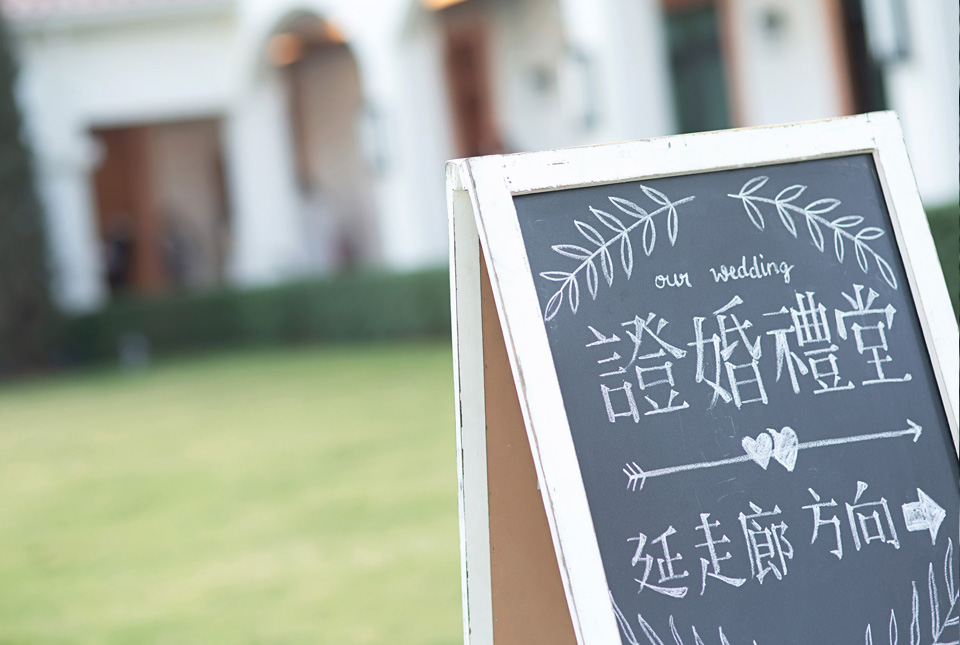 our wedding
證婚禮堂
延走廊方向